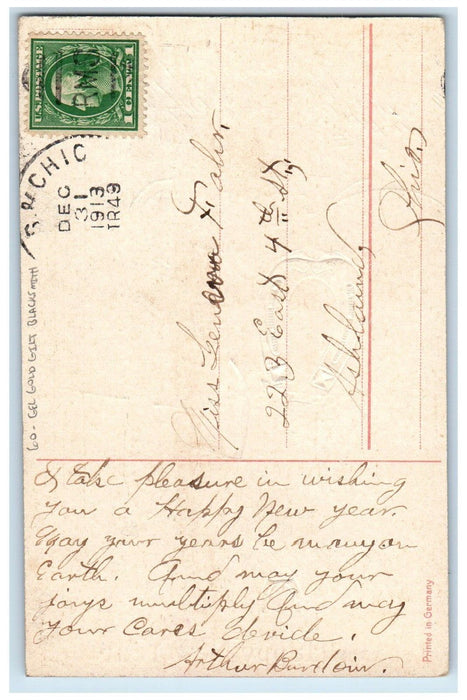 U.S. POSTAGE
1 CENT 1
R.M.S
& N CHIC
DEC
31
1913
TR49
60 - GEL GOLD GILT BLACKSMITH
Miss Geneva Fahr.
223 East 4th St,
Ashland,
Ohio
I take pleasure in wishing
you a Happy New year.
May your years be many on
Earth. And may your
joys multiply And may
your Cares devide.
Arthur Burdoin.
Printed in Germany